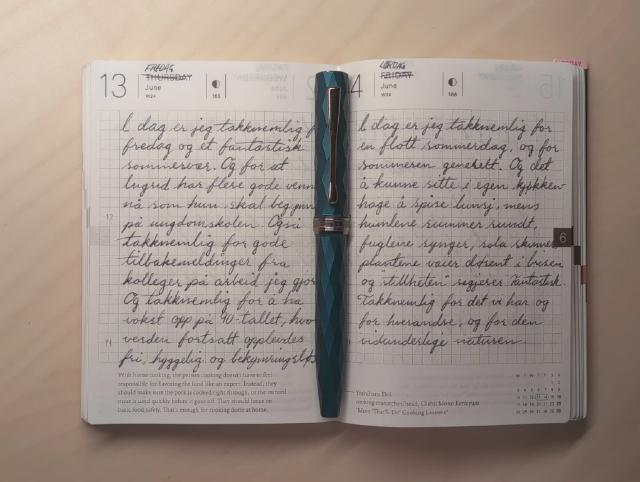 FREDAG
13
THURSDAY
June
W24
165
I dag er jeg takknemlig f
fredag og et fantastisk
sommervær. Og for at
Ingrid har flere gode venn
nå som hun skal beg
på ungdomskolen. Også
takknemlig for gode
tilbakemeldinger fra
kolleger på arbeid jeg gjør
Og takknemlig for å ha
vokst opp på 90-tallet, hvo
verden fortsatt opplevdes
fri, hyggelig og bekymringsløs
12
With home cooking, the person cooking doesn't have to feel
responsible for flavoring the food like an expert. Instead, they
should make sure the pork is cooked right through, or the
meat is used quickly before it goes off. They should focus on
basic food safety. That's enough for cooking done at home.
LØRDAG
4
FRIDAY
June
W24
166
I dag er jeg takknemlig for
en flott sommerdag, og for
sommeren generelt. Og det
å kunne sitte i egen kjøkken
hage å spise lunsj, mens
humlene summer rundt,
fuglene synger, sola skinner
plantene vaier døsent i brisen
og "stillheten" regjerer. Fantastisk.
Takknemlig for det vi har og
for hverandre, og for den
vidunderlige naturen.
6
Yoshiharu Doi
cooking researcher/head, Oishii Mono Kenkyujo
"More 'That'll Do' Cooking Lessons"